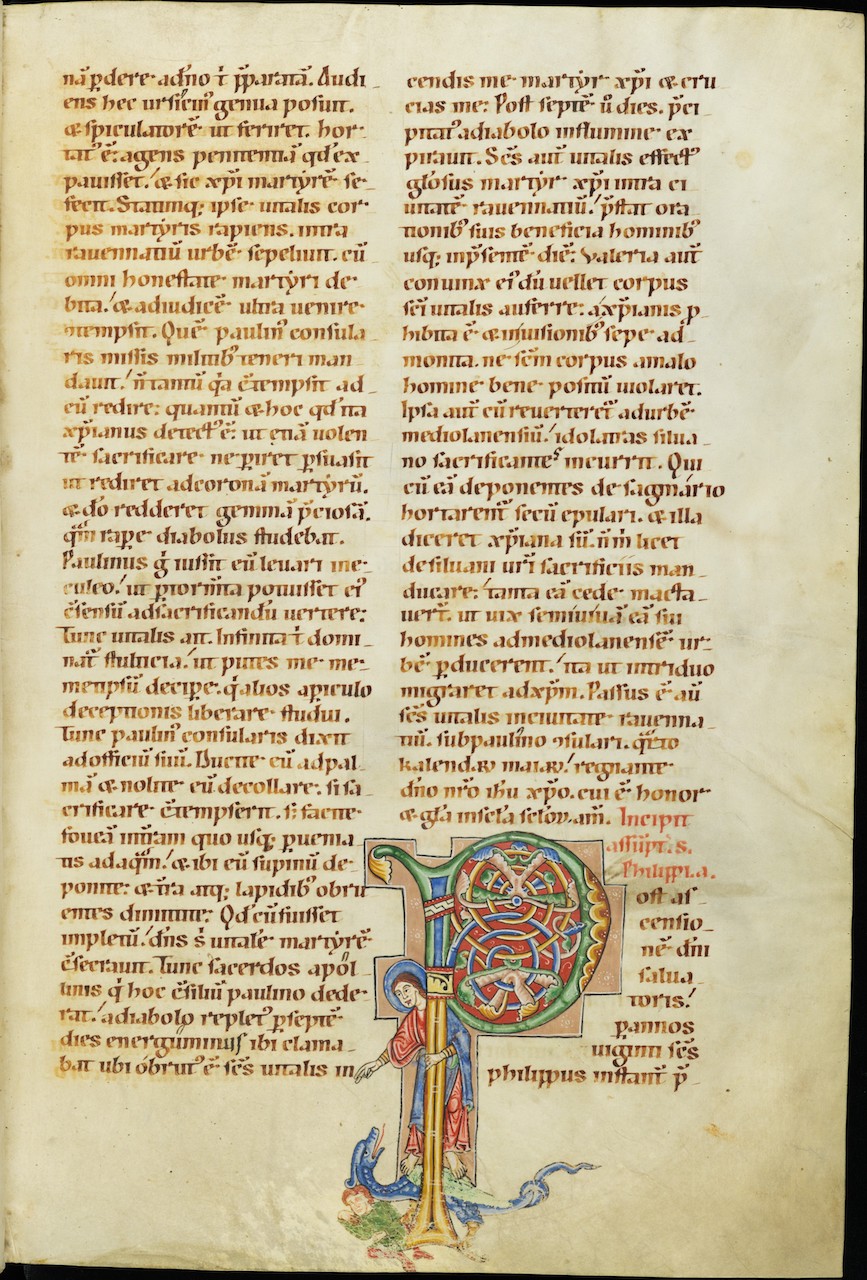 nã ꝑdere· ad dño t̃ p̃paratã. Audi
ens hec ursicin᷒ genua posuit.
& spiculatorẽ· ut feriret· hor
tat᷒ ẽ: agens penitentiã qd ex
pauisset.' & sic xp̃i martyrẽ· fe
fecit. Statimq; ipse· uitalis cor
pus martyris rapiens. intra
rauennatiũ urbẽ· sepeliuit. cũ
omni honestate· martyri de
bita.' & adiudicẽ· ultra uenire·
ꝯtempsit. Quẽ· paulin᷒ consula
ris missis militib᷒ teneri man
dauit.' ñ tantũ q̃a cõtempsit ad
eũ redire: quantũ & hoc qd ita
xp̃ianus detect᷒ ẽ: ut etiã uolen
tẽ· sacrificare· ne ꝑiret ꝑsuasit
ut rediret ad coronã martyrũ.
& dõ redderet gemmã p̃ciosã.
quã rape· diabolus studebat.
Paulinus g̊ iussit eũ leuari in e
culeo.' ut p tormta potuisset ei᷒
cõsensũ ad sacrificandũ uertere:
Tunc uitalis ait. Infinita t̃ domi
nat̃ stulticia.' ut putes me· me
metipsũ decipe· q̃ alios a piculo
deceptionis liberare studui.
Tunc paulin᷒ consularis dixit
ad officiũ suũ. Ducite· eũ ad pal
mã & nolite· eũ decollare· si sa
crificare· cõtempserit. s; facite·
foueã inimam quo usq; ꝑuenia
tis ad aq̃m.' & ibi eũ supinũ de
ponite: & tr̃a atq; lapidib᷒ obru
entes dimittite: Qd cũ fuisset
impletũ.' dñs s̃ uitale· martyrẽ
cõsecrauit. Tunc sacerdos apol
linis q̃ hoc cõsiliũ paulino dede
rat.' a diabolo replet᷒ ꝑ septẽ
dies energuminus ibi clama
bat ubi obrut᷒ ẽ· sc̃s uitalis in
cendis me· martyr· xp̃i & cru
cias me: Post septẽ· ũ dies. p̃ci
pitat᷒ a diabolo in flumine· ex
pirauit. Sc̃s aut̃ uitalis effect᷒
glõsus martyr· xp̃i intra ci
uitatẽ· rauennatiũ.' p̃stat ora
tionib᷒ suis beneficia hominib᷒
usq; in p̃sentẽ· diẽ: Valeria aut̃
coniunx ei᷒ dũ uellet corpus
sc̃i uitalis auferre: a xp̃ianis ꝓ
hibita ẽ· & in uisionib᷒ sepe· ad
monita. ne· sc̃m corpus a malo
homine· bene· positũ uiolaret.
Ipsa aut̃ cũ reuerteret̃ ad urbẽ·
mediolanensiũ.' idolatras silua
no sacrificantes incurrit. Qui
cũ eã deponentes de sagmário
hortarent̃ secũ epulari. & illa
diceret xp̃iana sũ. ñ m̃ licet
de siluani ur̃i sacrificiis man
ducare: 'tanta eã cede· macta
uer̃t. ut uix semiuiuã eã sui
homines ad mediolanensẽ· ur
bẽ· ꝑducerent.' ita ut in triduo
migraret ad xp̃m. Passus ẽ· aũ
sc̃s uitalis in ciuitate· rauenna
tiũ. sub paulino ꝯsulari. q̃rto
kalendaꝝ maiaꝝ.' regnante·
dño nr̃o ihũ xp̃o. cui ẽ· honor·
& glã in sc̃la sc̃loꝝ. am̃. Incipit
assũpt. s.
Philippi a.
Post as
censio
nẽ· dñi
salua
toris.'
p annos
uiginti sc̃s
philippus instant̃ p̃